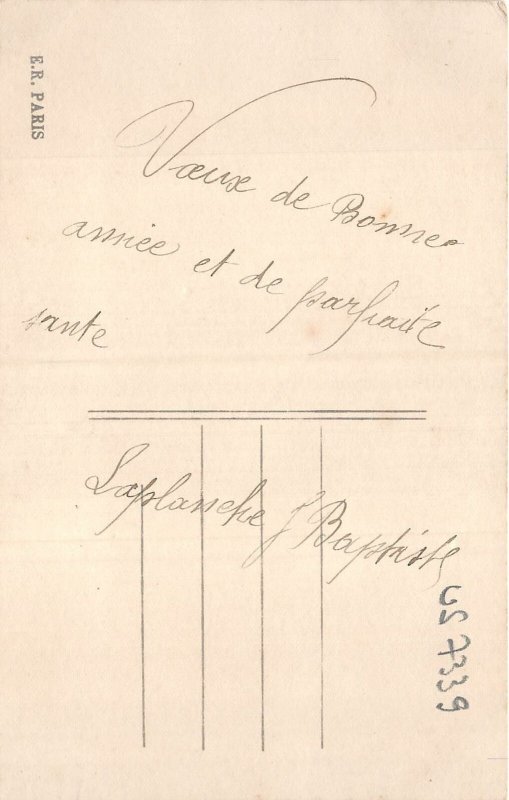 E.R. PARIS
Vœux de Bonne
année et de parfaite
sante
Laplanche J Baptiste
US 7339